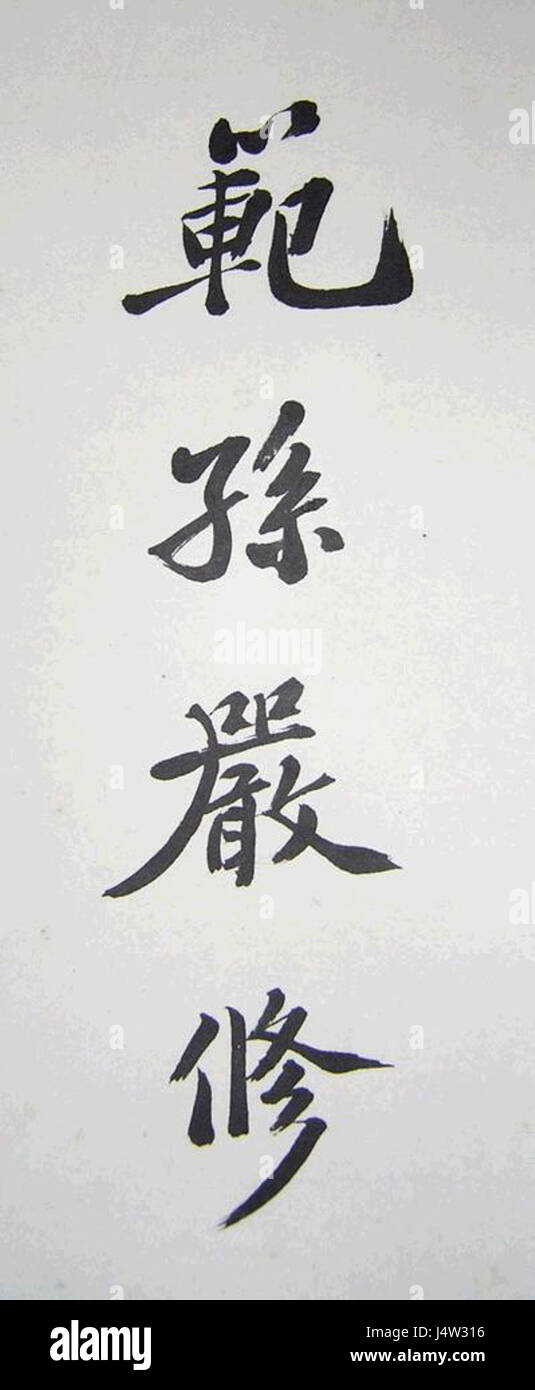 範孫嚴修
alamy
alamy
Image ID: J4W316
www.alamy.com